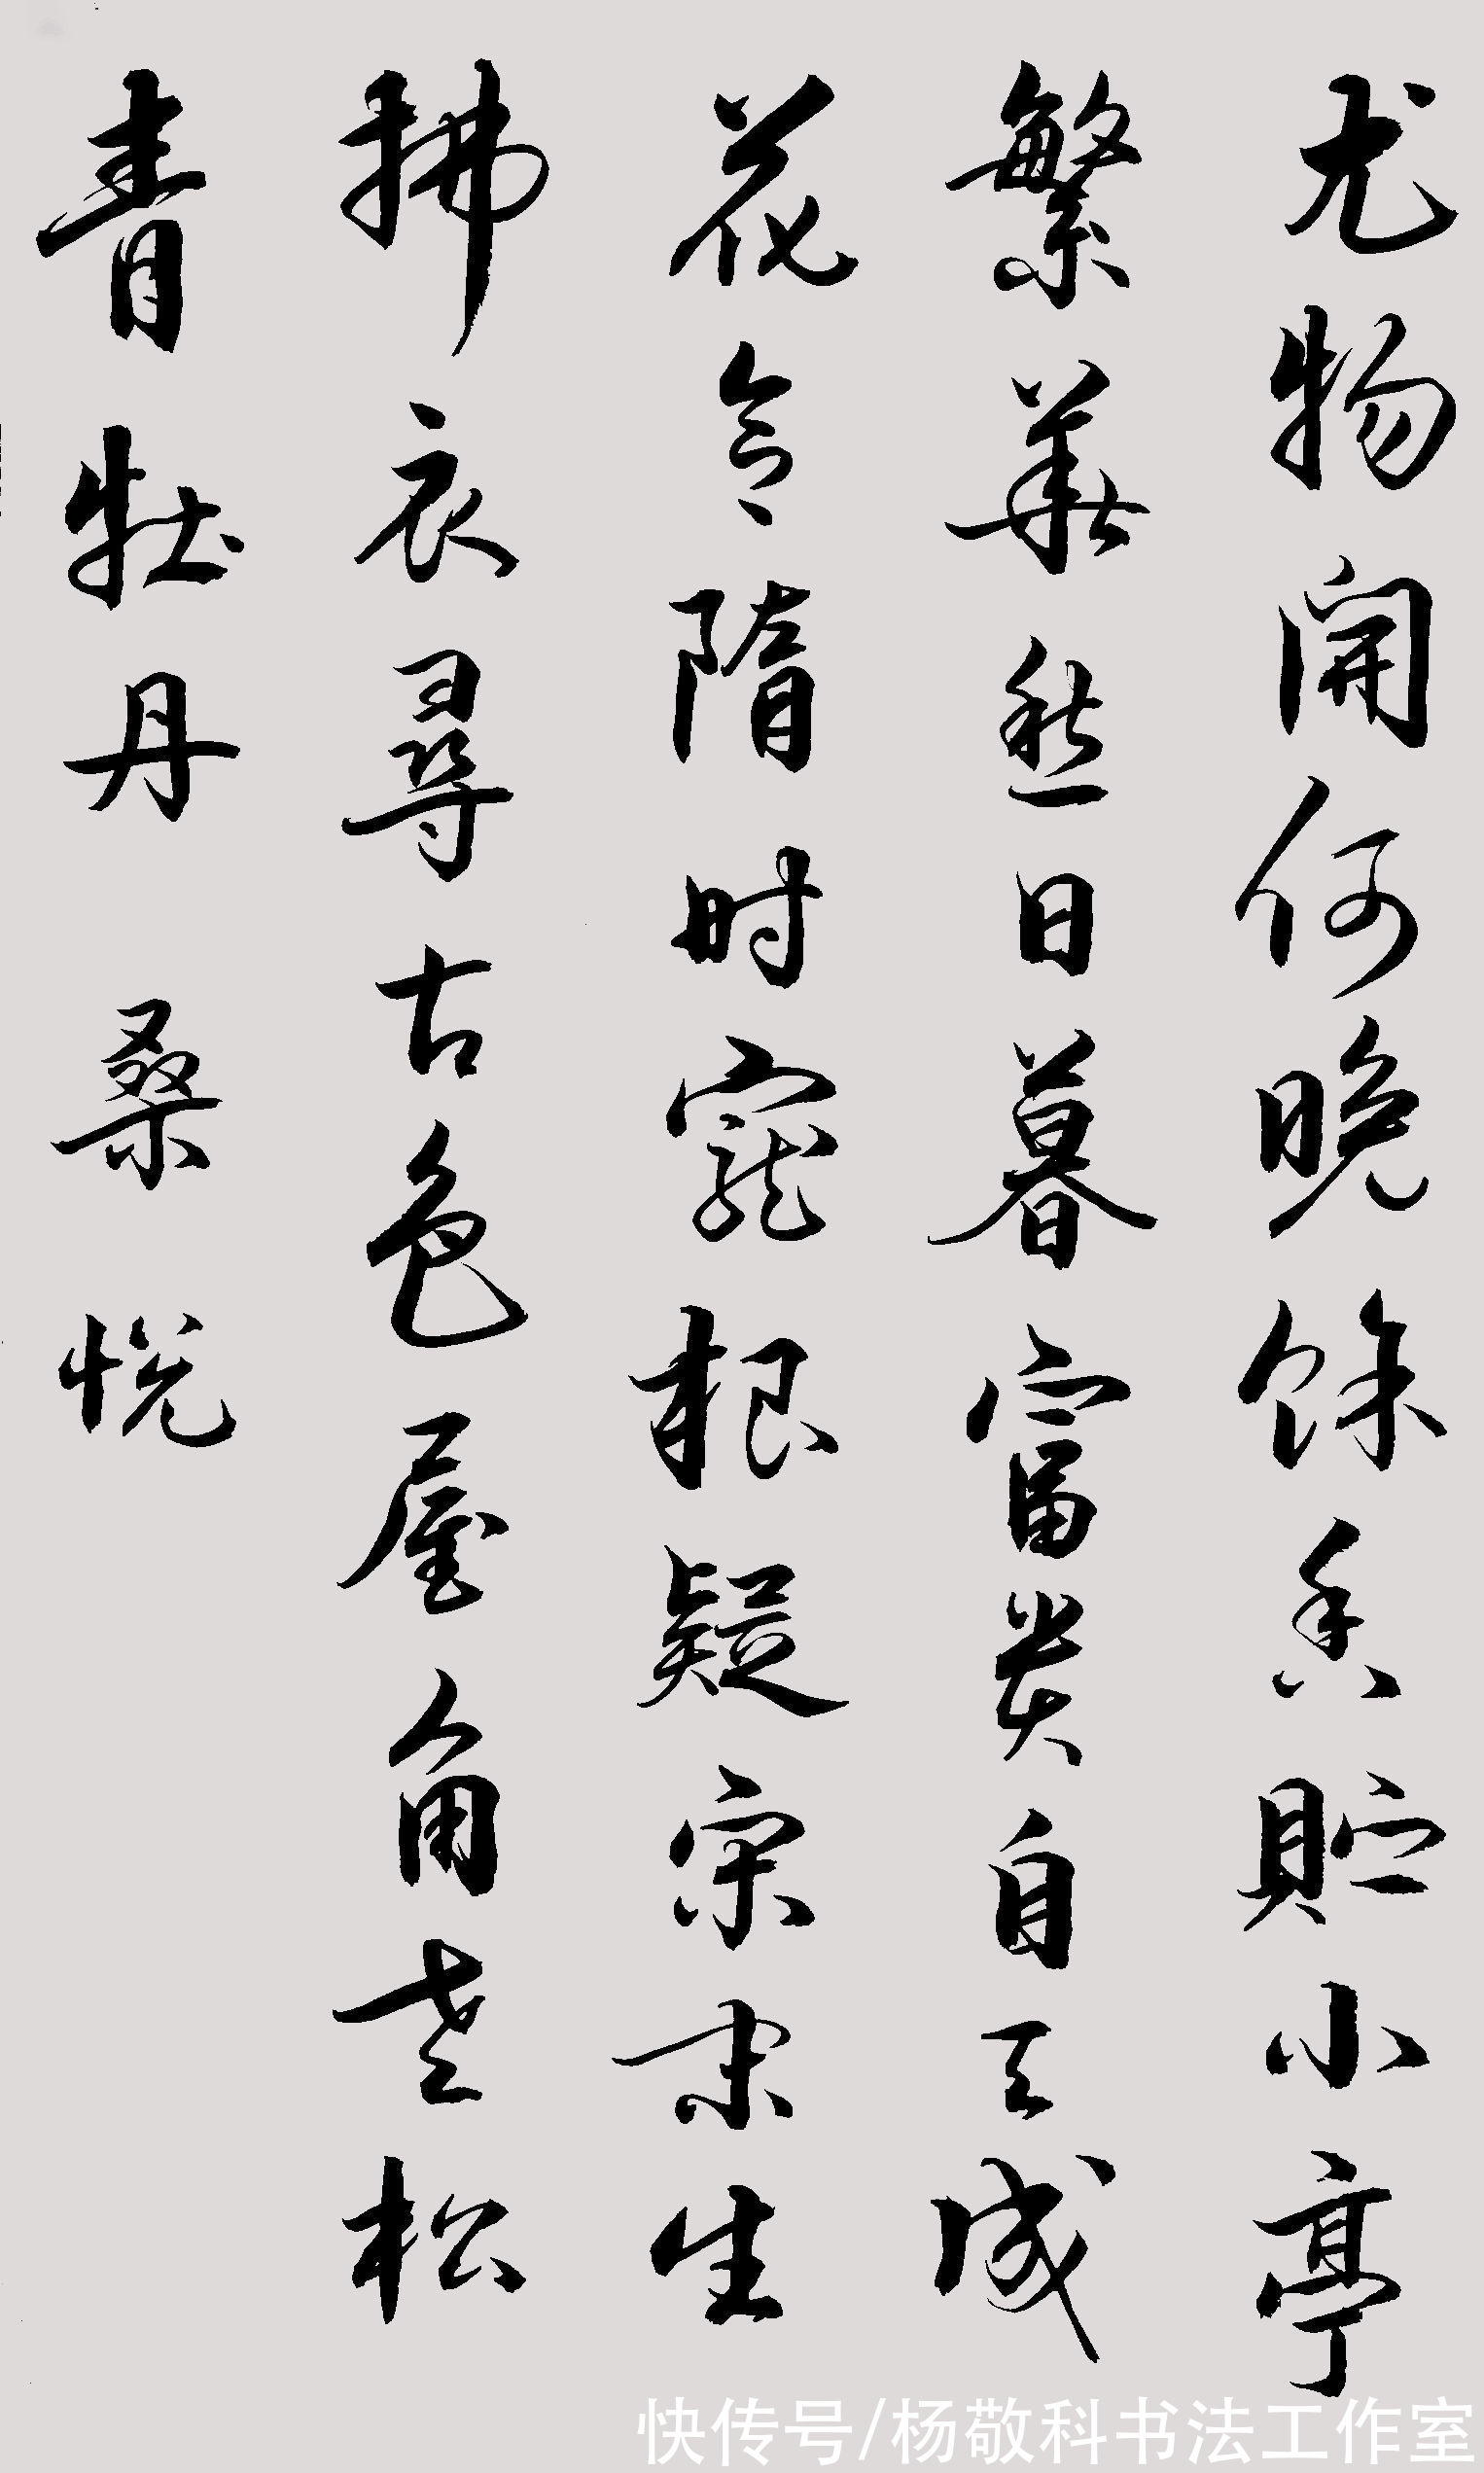 尤物開何晚餘香貯小亭
繁華愁日暮富贵自天成
花令隋时寵根疑宋末生
拂衣尋古色屋角老松
青牡丹 桑悦
快传号/杨敬科书法工作室